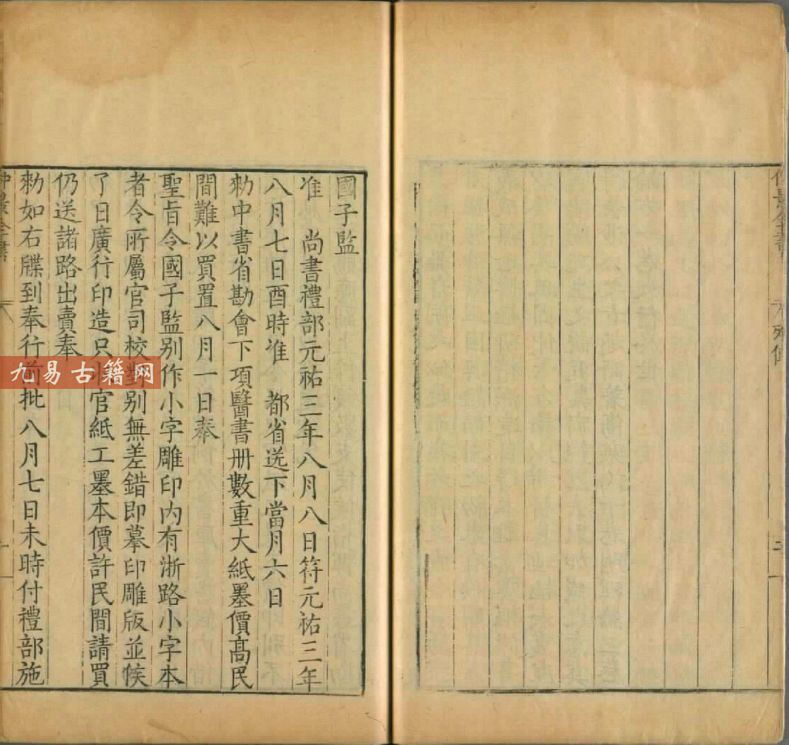 國子監
准　尚書禮部元祐三年八月八日符元祐三年
八月七日酉時准　都省送下當月六日
勑中書省勘會下項醫書册數重大紙墨價髙民
間難以買置八月一日奉
聖旨令國子監别作小字雕印内有浙路小字本
者令所屬官司校對别無差錯即摹印雕版並候
了日廣行印造只官紙工墨本價許民間請買
仍送諸路出賣奉
勑如右牒到奉行前批八月七日未時付禮部施
仲景全書
九易古籍网